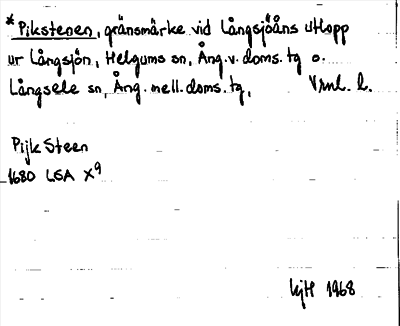 *Pikstenen, gränsmärke vid Långsjöåns utlopp
ur Långsjön, Helgums sn, Ång. v. doms. tg o.
Långsele sn, Ång. mell. doms. tg, Vrml. l.
Pijk Steen
1680 LSA X9
1968